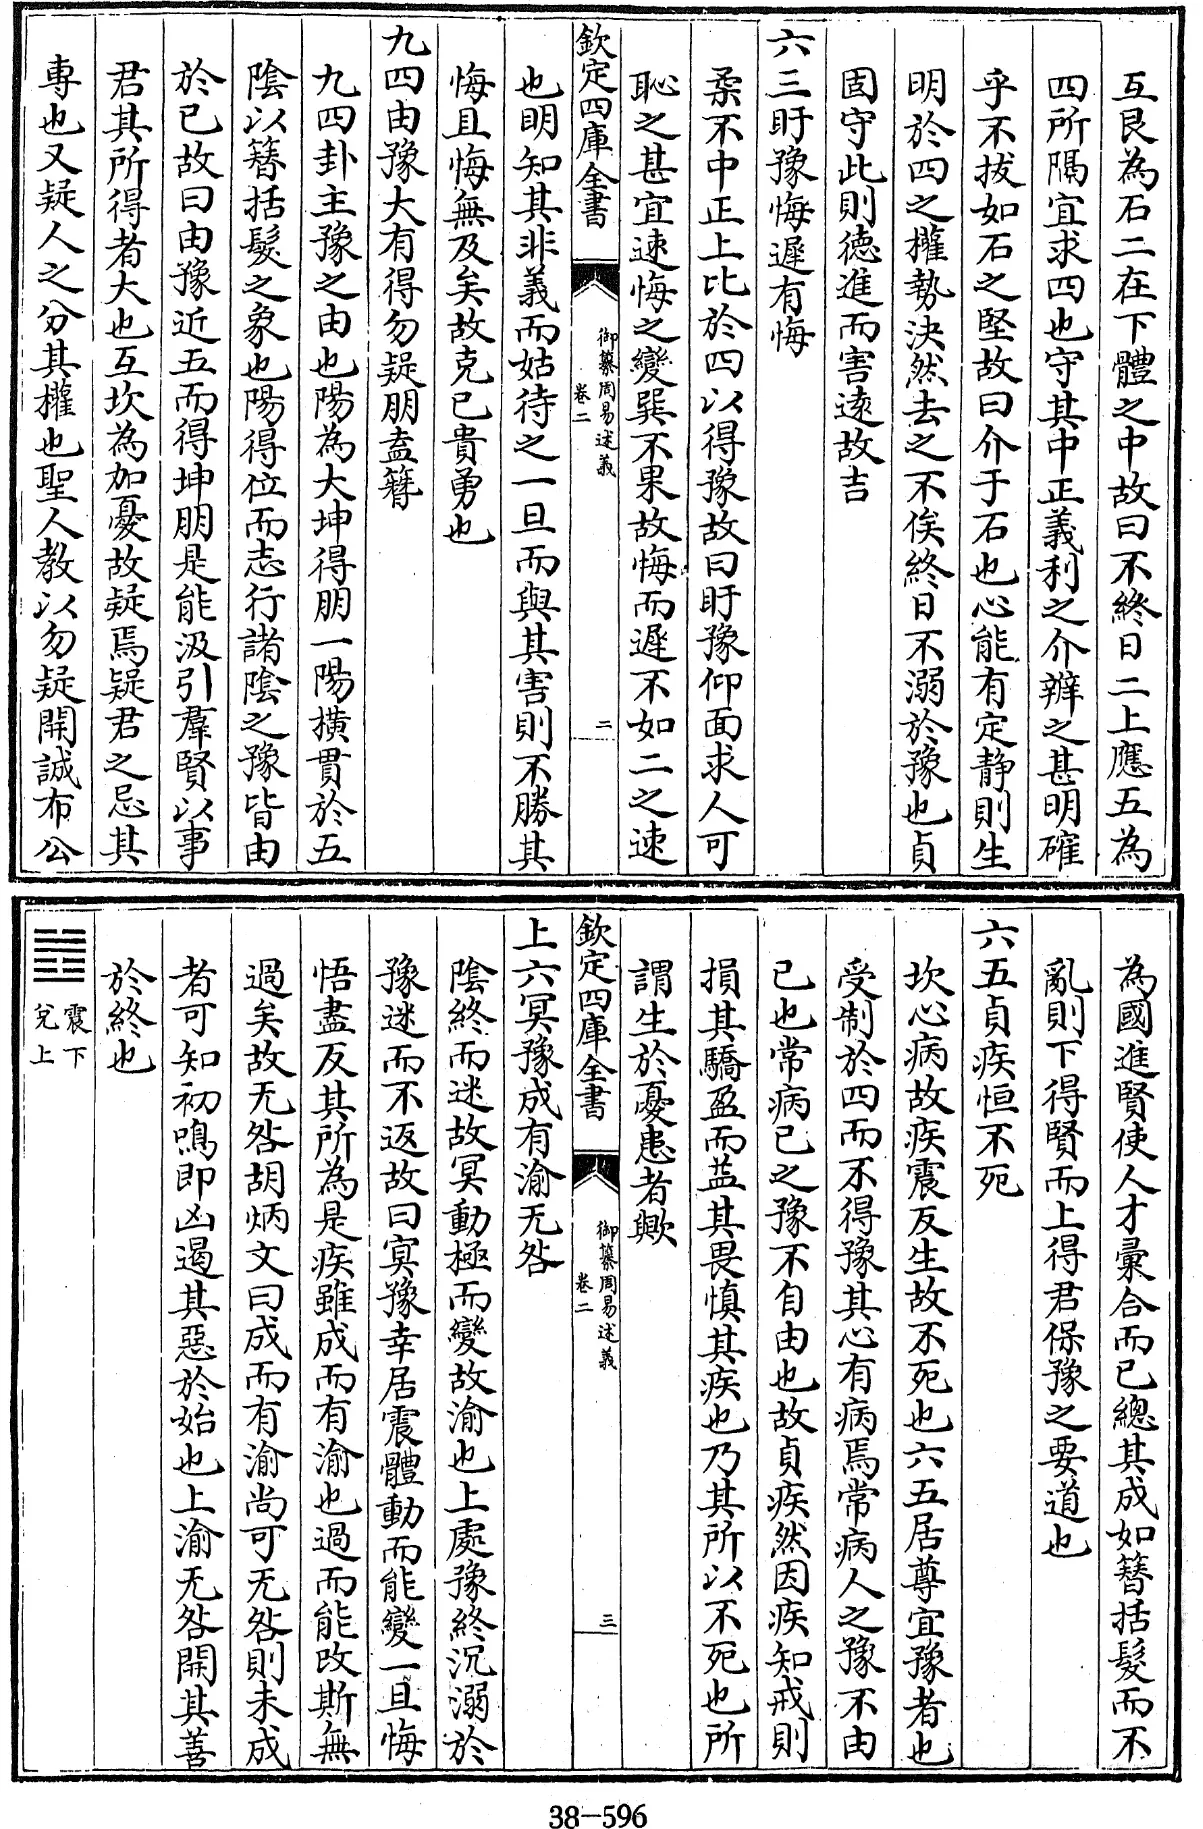 互艮為石二在下體之中故曰不終日二上應五為
四所隔宜求四也守其中正義利之介辨之甚明確
乎不拔如石之堅故曰介于石也心能有定静則生
明於四之權勢決然去之不俟終日不溺於豫也貞
固守此則德進而害遠故吉
六三盱豫悔遲有悔
柔不中正上比於四以得豫故曰盱豫仰面求人可
恥之甚宜速悔之變巽不果故悔而遲不如二之速
欽定四庫全書
御纂周易述義
卷二
二
也明知其非義而姑待之一旦而與其害則不勝其
悔且悔無及矣故克己貴勇也
九四由豫大有得勿疑朋盍簪
九四卦主豫之由也陽為大坤得朋一陽横貫於五
陰以簪括髮之象也陽得位而志行諸陰之豫皆由
於已故曰由豫近五而得坤朋是能汲引羣賢以事
君其所得者大也互坎為加憂故疑焉疑君之忌其
專也又疑人之分其權也聖人教以勿疑開誠布公
為國進賢使人才彙合而已總其成如簪括髮而不
亂則下得賢而上得君保豫之要道也
六五貞疾恒不死
坎心病故疾震反生故不死也六五居尊宜豫者也
受制於四而不得豫其心有病焉常病人之豫不由
已也常病已之豫不自由也故貞疾然因疾知戒則
損其驕盈而益其畏慎其疾也乃其所以不死也所
謂生於憂患者歟
欽定四庫全書
御纂周易述義
卷二
三
上六冥豫成有渝无咎
陰終而迷故冥動極而變故渝也上處豫終沉溺於
豫迷而不返故曰冥豫幸居震體動而能變一旦悔
悟盡反其所為是疾雖成而有渝也過而能改斯無
過矣故无咎胡炳文曰成而有渝尚可无咎則未成
者可知初鳴即凶遏其惡於始也上渝无咎開其善
於終也
震下
兌上
38-596